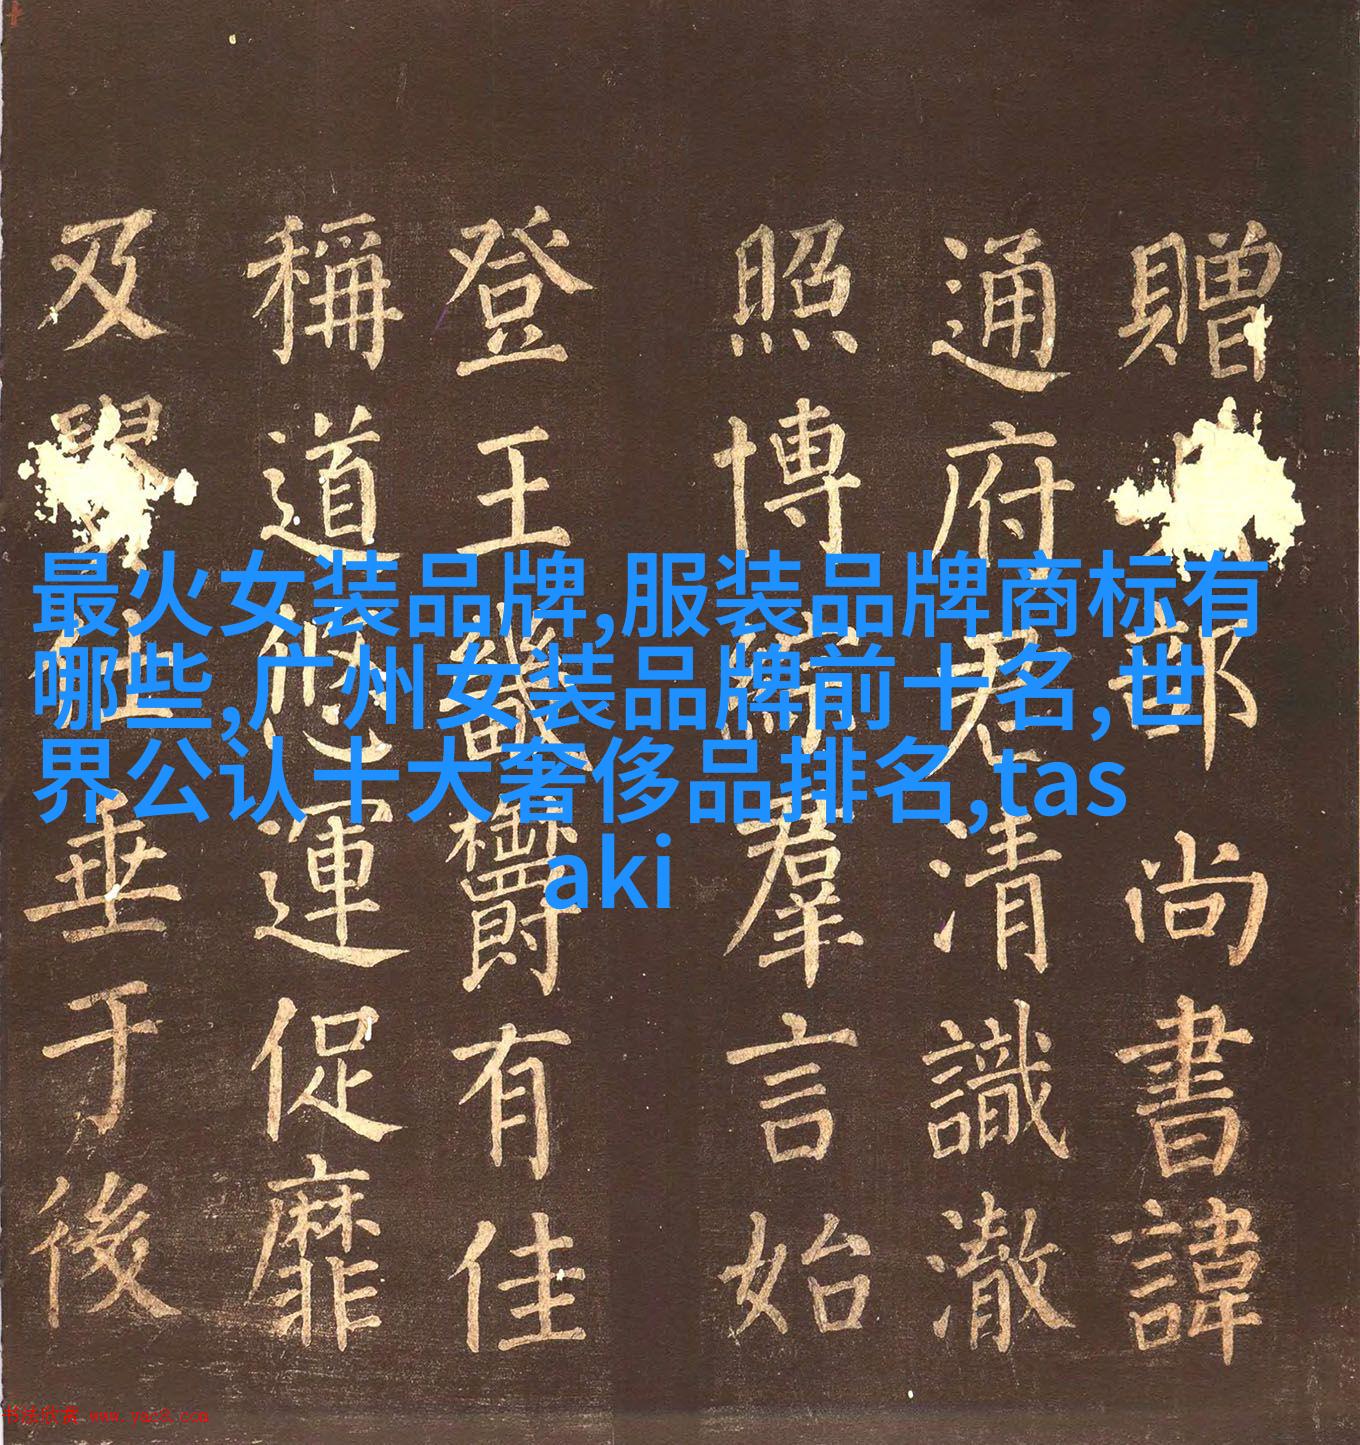 最火女装品牌,服装品牌商标有
哪些,广州女装品牌前十名,世
界公认十大奢侈品排名,tas
aki
贈部尚書諱
通府君清識澈
照博綜羣言始
登王畿欝有佳
稱道悠運促靡
及垂于後
书法欣赏 www.yac8.com